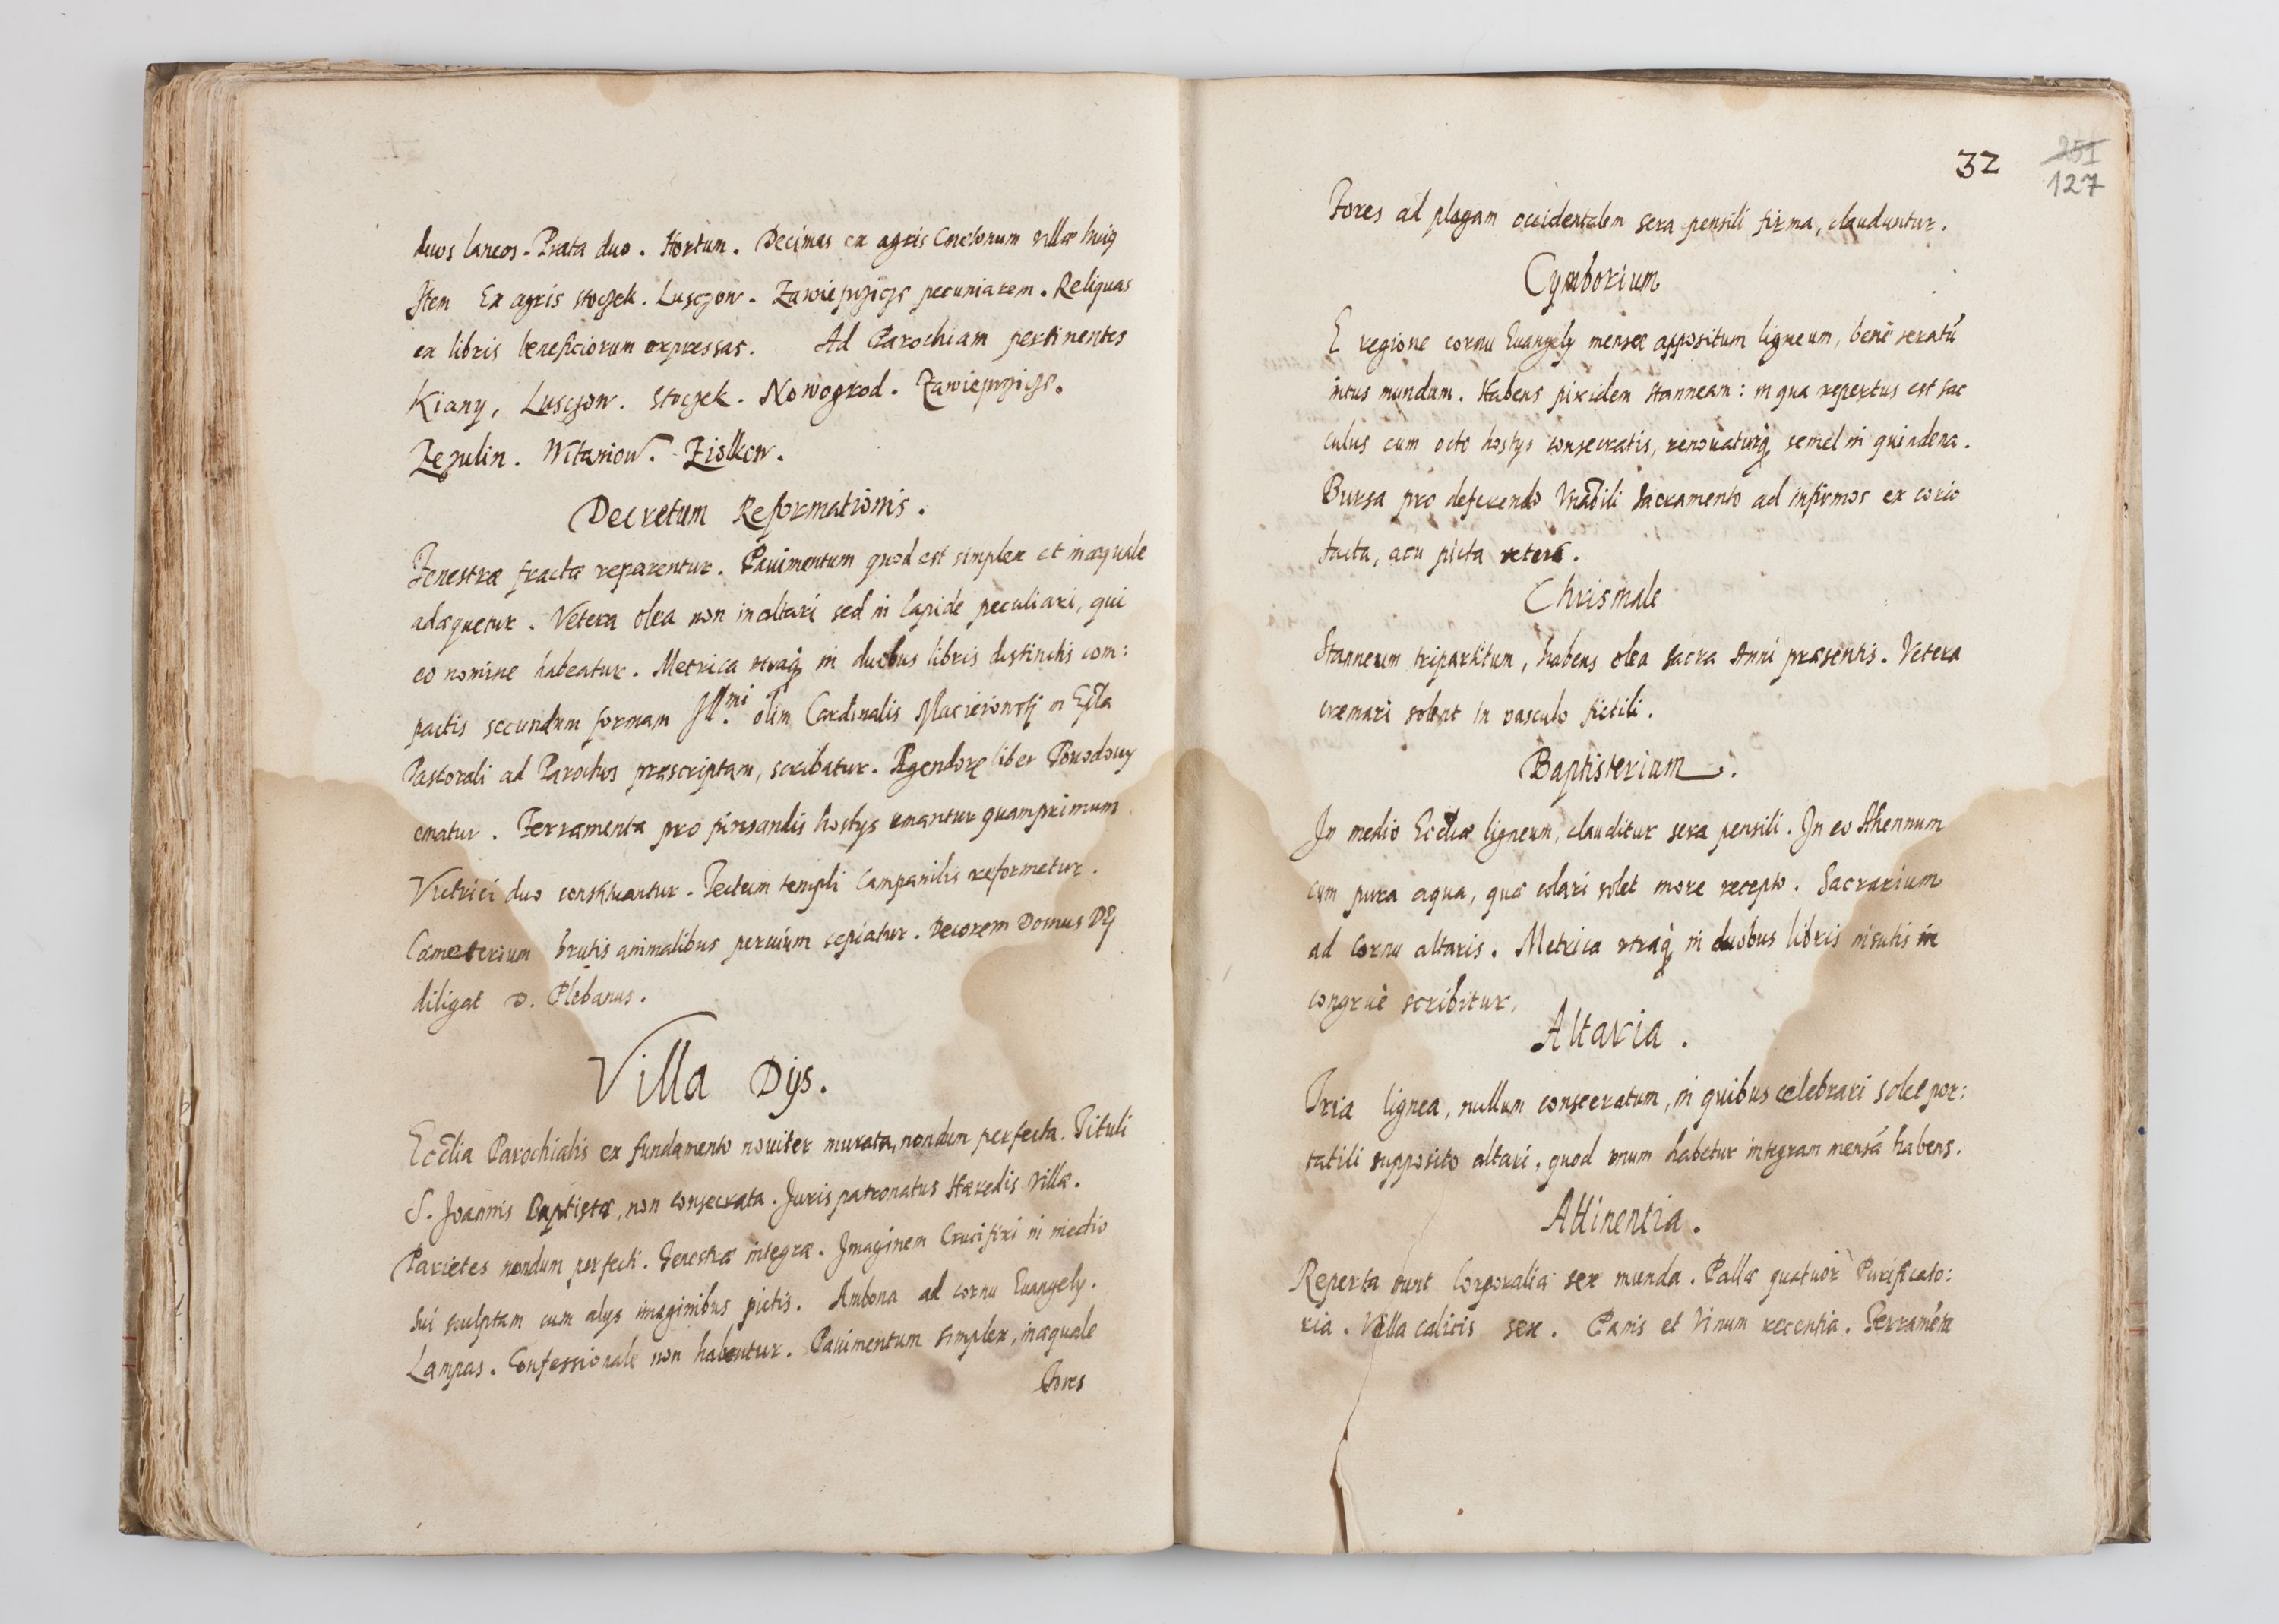 duos laneos. Prata duo. Hortum. Decimas ex agris Cmetonum villæ huiq
Item Ex agris Stoczek. Lusczow. Zawieprzicze pecuniarem. Reliquas
ex libris beneficiorum expressas. Ad Parochiam pertinentes
Kiany, Lusczow. Stoczek. Nowogrod. Zawieprzicze.
Zezulin. Witaniow. Ziolkow.
Decretum Reformationis.
Fenestræ fractæ reparentur. Pauimentum quod est simplex et inæquale
adæquetur. Vetera olea non in altari sed in lapide peculiari, qui
eo nomine habeatur. Metrica utraq in duobus libris distinctis com:
pactis secundum formam Ill.mi olim Cardinalis Macieiowsij in Epla
Pastorali ad Parochos præscriptam, scribatur. Agendorę liber Powodowij
ematur. Ferramenta pro pinsandis hostys emantur quamprimum
Vitrici duo constituantur. Tectum templi Campanilis reformetur.
Cæmeterium brutis animalibus peruium sepiatur. Decorem Domus DEj
diligat D. Plebanus.
Villa Dijs.
Ecclia Parochialis ex fundamento nouiter murata, nondum perfecta. Tituli
S. Joannis Baptistæ, non consecrata. Juris patronatus Hæredis Villæ.
Parietes nondum perfecti. Fenestræ integræ. Imaginem Crucifixi in medio
sui sculptam cum alys imaginibus pictis. Ambona ad cornu Euangely.
Lampas. Confessionale non habentur. Pauimentum simplex, inæquale
Fores
32
251
127
Fores ad plagam occidentalem sera pensili firma, clauduntur.
Cymborium
E regione cornu Euangely mensæ appositum ligneum, benè seratū
intus mundum. Habens pixidem stanneam: in qua repertus est sac
culus cum octo hostys consecratis, renouaturq semel in quindena.
Bursa pro deferendo Vnābili Sacramento ad infirmos ex corio
facta, acu picta vetera.
Chrismale
Stanneum tripartitum, habens olea sacra Anni præsentis. Vetera
cremari solent in vasculo fictili.
Baptisterium.
In medio Eccliæ ligneum, clauditur sera pensili. In eo Ahennum
cum pura aqua, quæ colari solet more recepto. Sacrarium
ad cornu altaris. Metrica utraq in duobus libris insutis in
congruè scribitur.
Altaria.
Tria lignea, nullum consecratum, in quibus celebrari solet por:
tatili supposito altari, quod unum habetur integram mensā habens.
Attinentia.
Reperta sunt Corporalia sex munda. Pallæ quatuor Purificato:
ria. Vella calicis sex. Panis et Vinum recentia. Ferramēta